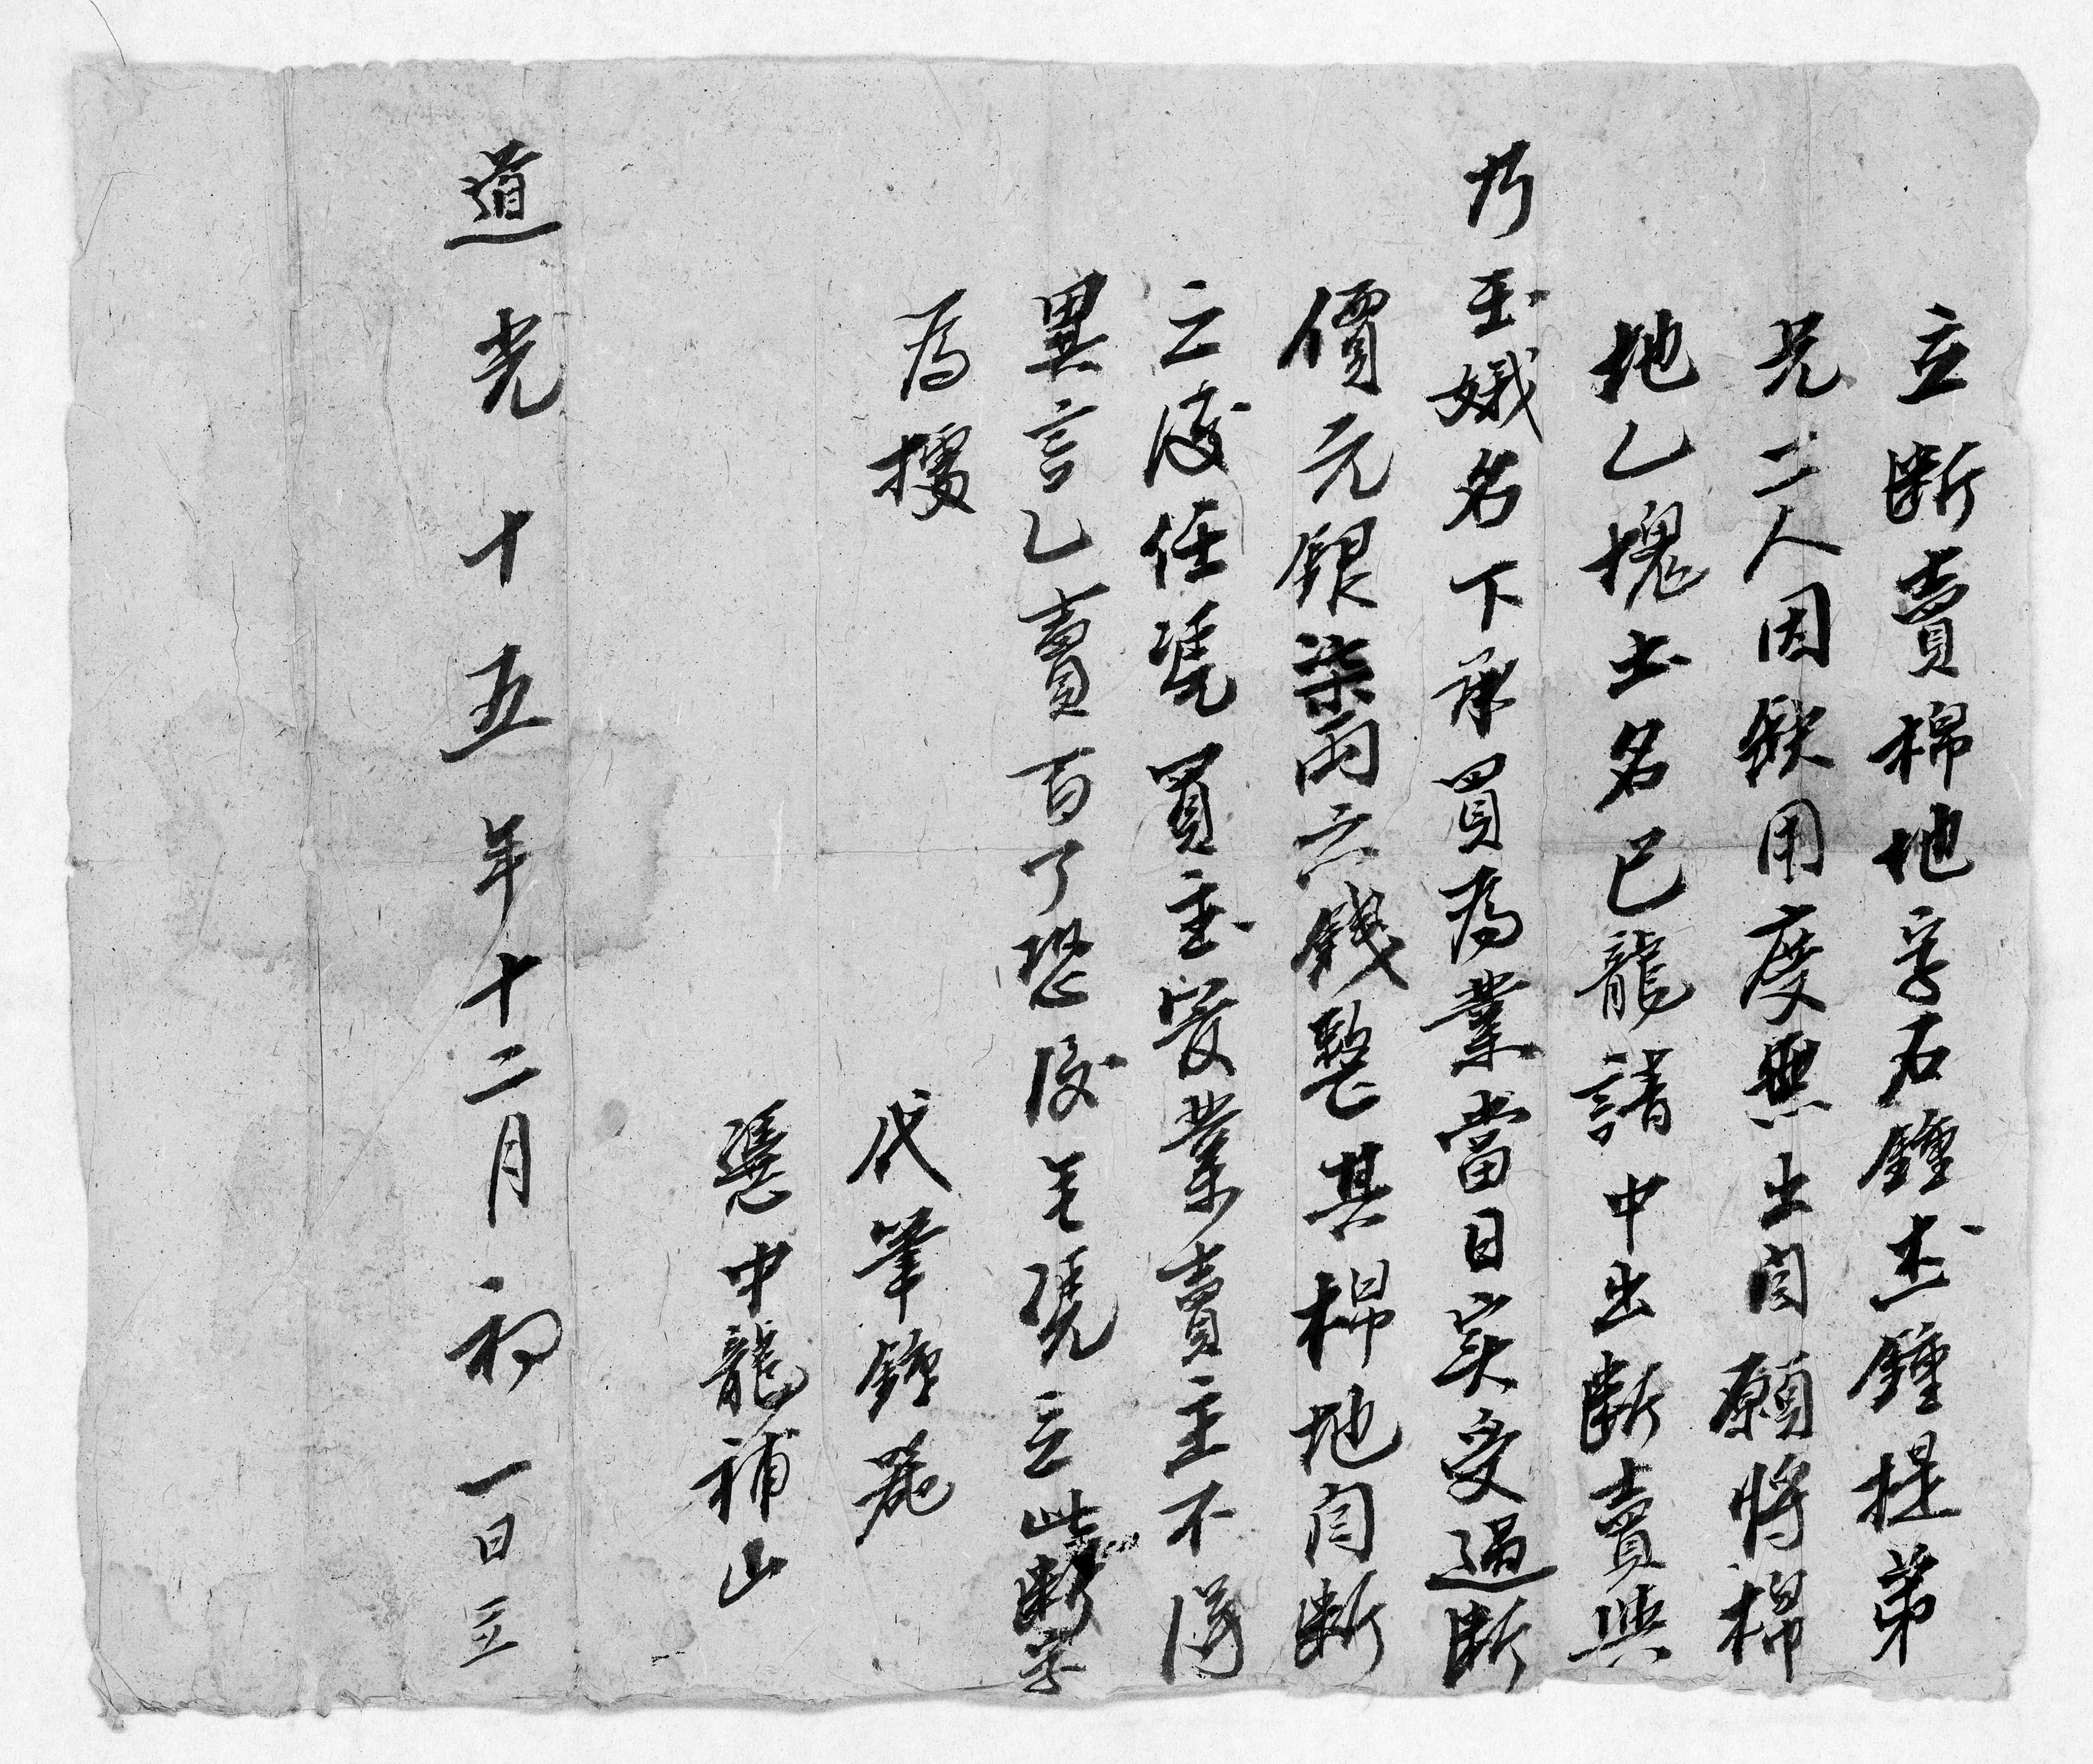 立断賣棉地字石鐘杰鐘提弟
兄二人因缺用度無出自願将棉
地乙塊土名已龍請中出断賣與
乃玉娥名下承買為業當日实受過断
價元銀柒両六錢整其棉地自断
之後任凴買主管業賣主不得
異言乙賣百了恐後无凴立此断字
為據
代筆鐘
憑中龍補山
道光十五年十二月初一日立